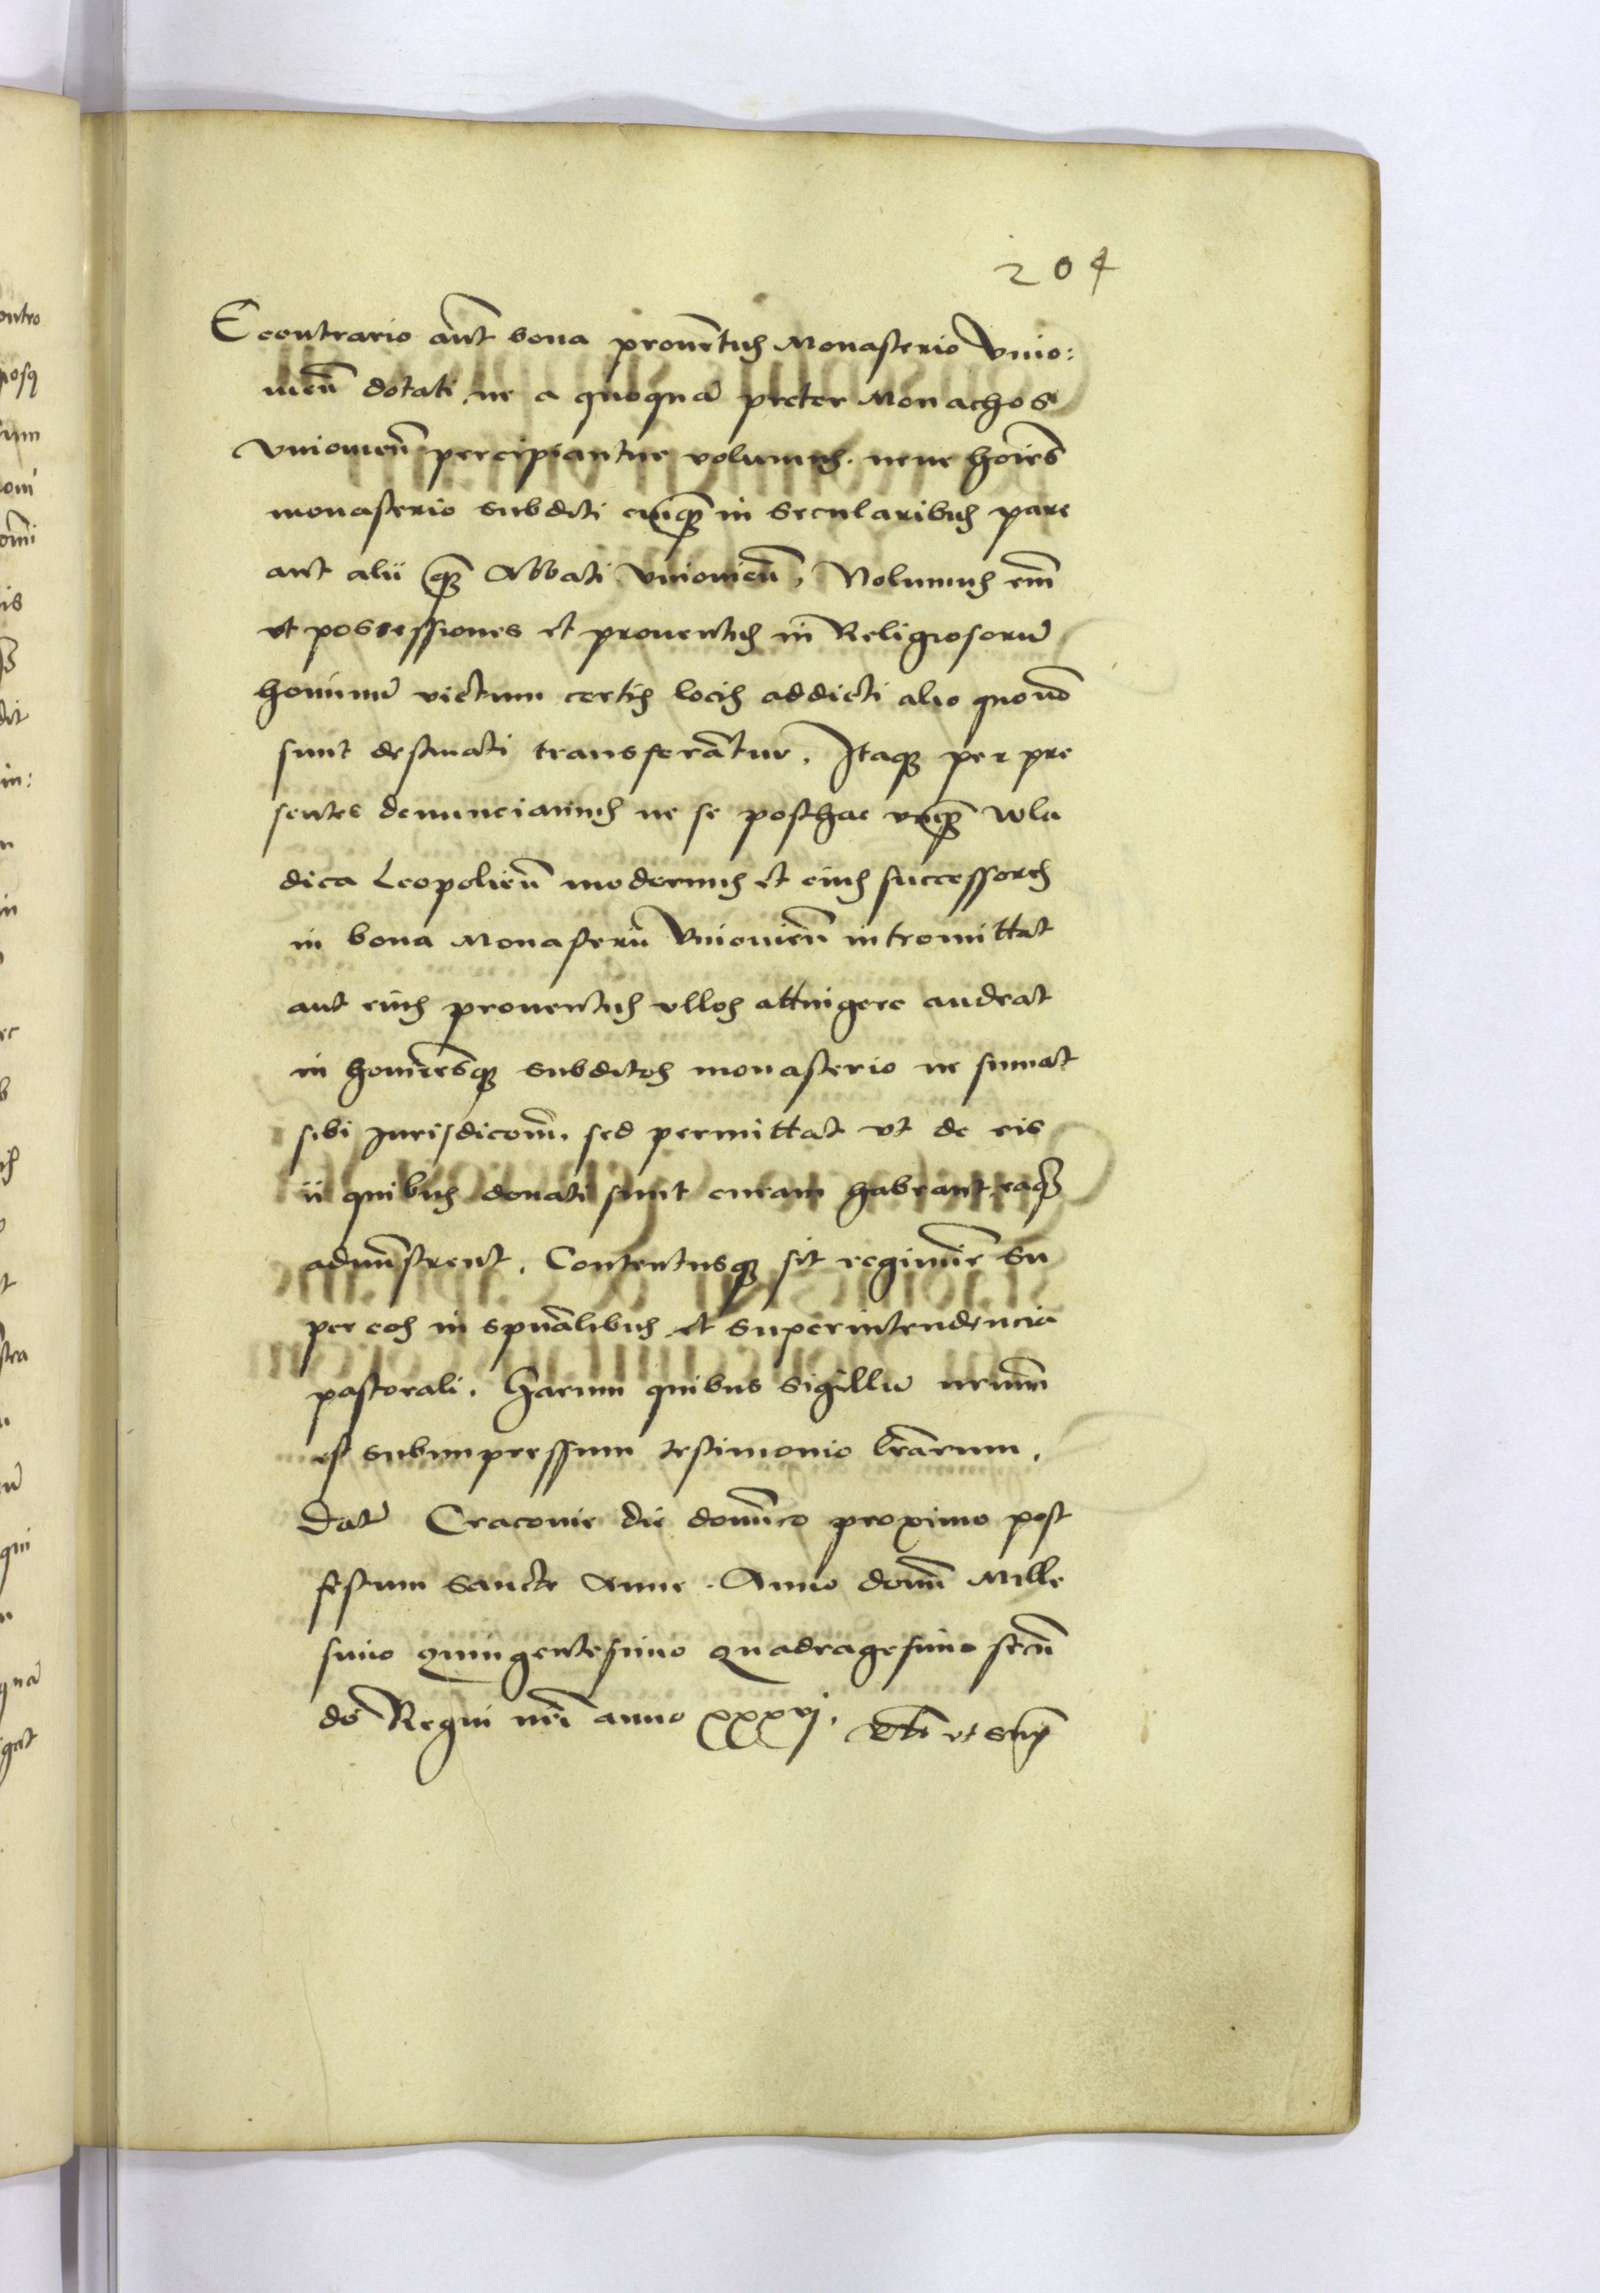 204
Econtrario aut bona prouentus Monasterio Vnio:
uien dotati, ne a quoqua preter Monachos
Vniouien percipiantur volumus. neue hoies
monasterio subditi cuiq in secularibus pare
ant alii q Abbati Vniouien, Nolumus em
vt possessiones et prouentus in Religiosoru
hominu victum certis locis addicti alio quo no
sunt destinati transferatur. Itaq per pre
sentes denunciamus ne se posthac vnq Wla
dica Leopolien modernus et eius successores
in bona Monasterii Vniouien intromittat
aut eius prouentus vllos attingere audeat
in hominesq subditos monasterio ne sumat
sibi Jurisdicom. sed permittat vt de eis
ii quibus donati sunt curam habeant, eaq
admstrent. Contentusq sit regimie su
per eos in spualibus et superintendencia
pastorali. Harum quibus sigillu nrum
est subimpressum testimonio lrarum.
Dat Cracouie die domico proximo post
festum Sancte Anne. Anno domi Mille
simo quingentesimo quadragesimo secu
do Regni nri anno xxxvj. vt sup